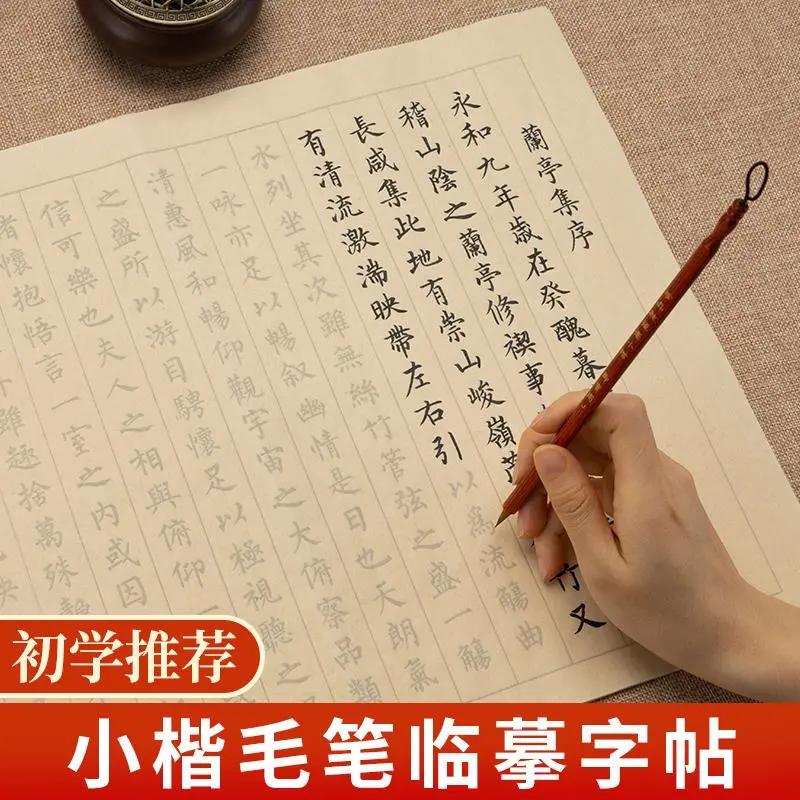 蘭亭集序
永和九年歲在癸醜暮
稽山陰之蘭亭修禊事
長咸集此地有崇山峻嶺茂竹又
有清流激湍映帶左右引以為流觴曲
水列坐其次雖無絲竹管弦之盛一觴
一咏亦足以暢叙幽情是日也天朗氣
清惠風和暢仰觀宇宙之大俯察品類
之盛所以游目騁懷足以極視聽之
信可樂也夫人之相與俯仰
諸懷抱悟言一室之內或因
雖趣捨萬殊
初学推荐
小楷毛笔临摹字帖